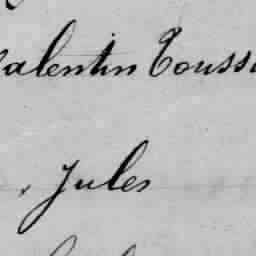 alentin Touss
Jules